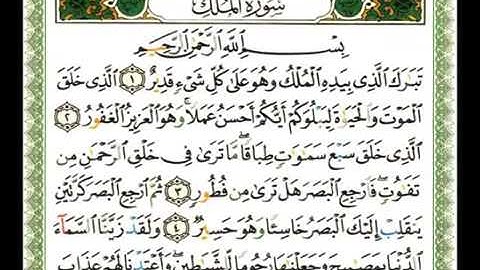 سُورَةُ المُلْكِ
بِسْمِ ٱللَّهِ ٱلرَّحْمَٰنِ ٱلرَّحِيمِ
تَبَٰرَكَ ٱلَّذِى بِيَدِهِ ٱلْمُلْكُ وَهُوَ عَلَىٰ كُلِّ شَىْءٍ قَدِيرٌ ١ ٱلَّذِى خَلَقَ
ٱلْمَوْتَ وَٱلْحَيَوٰةَ لِيَبْلُوَكُمْ أَيُّكُمْ أَحْسَنُ عَمَلًا ۚ وَهُوَ ٱلْعَزِيزُ ٱلْغَفُورُ ٢
ٱلَّذِى خَلَقَ سَبْعَ سَمَٰوَٰتٍ طِبَاقًا ۖ مَّا تَرَىٰ فِى خَلْقِ ٱلرَّحْمَٰنِ مِن
تَفَٰوُتٍ ۖ فَٱرْجِعِ ٱلْبَصَرَ هَلْ تَرَىٰ مِن فُطُورٍ ٣ ثُمَّ ٱرْجِعِ ٱلْبَصَرَ كَرَّتَيْنِ
يَنقَلِبْ إِلَيْكَ ٱلْبَصَرُ خَاسِئًا وَهُوَ حَسِيرٌ ٤ وَلَقَدْ زَيَّنَّا ٱلسَّمَآءَ
ٱلدُّنْيَا بِمَصَٰبِيحَ وَجَعَلْنَٰهَا رُجُومًا لِّلشَّيَٰطِينِ ۖ وَأَعْتَدْنَا لَهُمْ عَذَابَ